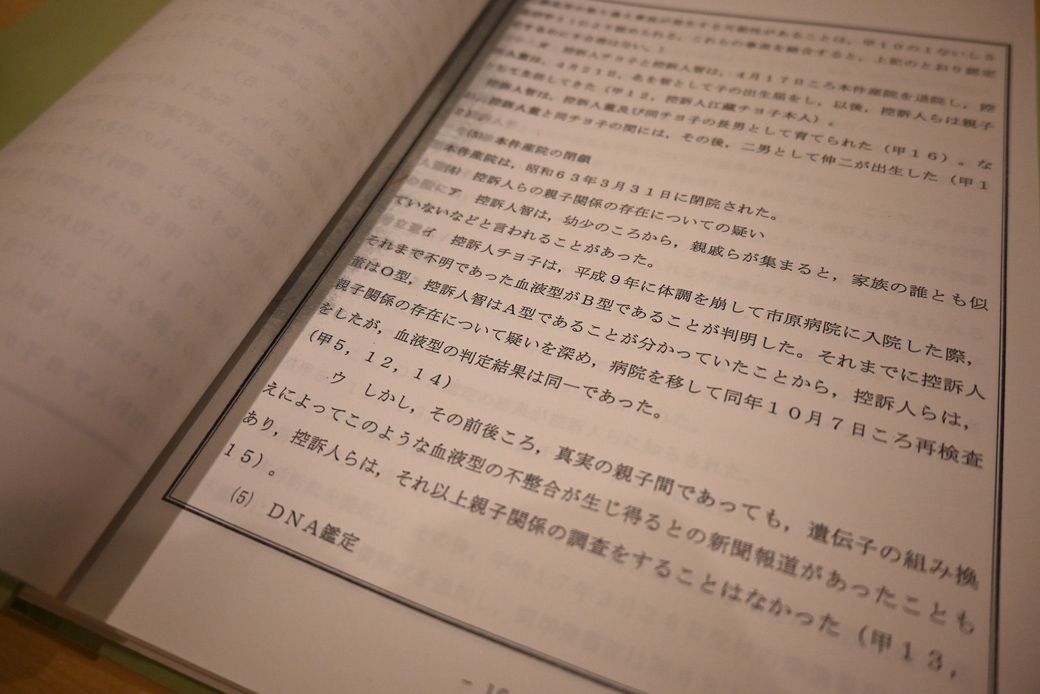 があることは，甲１０の１ないし５
これらの事実を総合すると，上記のとおり認定
するめにする得はない。）
オ　控訴人チヨ子と控訴人智は，４月１７日ころ本件産院を退院し，控
４月２１日，名を智として子の出生届をし，以後，控訴人らは親子
として生活してきた（甲１２，控訴人江蔵チヨ子本人）。
控訴人智は，控訴人董及び同チヨ子の長男として育てられた（甲１６）。な
控訴人董と同チヨ子の間には，その後，二男として伸二が出生した（甲１
(3)　本件産院の閉鎖
本件産院は，昭和６３年３月３１日に閉院された。
(4)　控訴人らの親子関係の存在についての疑い
ア　控訴人智は，幼少のころから，親戚らが集まると，家族の誰とも似
ていないなどと言われることがあった。
イ　控訴人チヨ子は，平成９年に体調を崩して市原病院に入院した際，
それまで不明であった血液型がＢ型であることが判明した。それまでに控訴人
董はＯ型，控訴人智はＡ型であることが分かっていたことから，控訴人らは，
親子関係の存在について疑いを深め，病院を移して同年１０月７日ころ再検査
をしたが，血液型の判定結果は同一であった。
（甲５，１２，１４）
ウ　しかし，その前後ころ，真実の親子間であっても，遺伝子の組み換
えによってこのような血液型の不整合が生じ得るとの新聞報道があったことも
あり，控訴人らは，それ以上親子関係の調査をすることはなかった（甲１３，
１５）。
(5)　ＤＮＡ鑑定